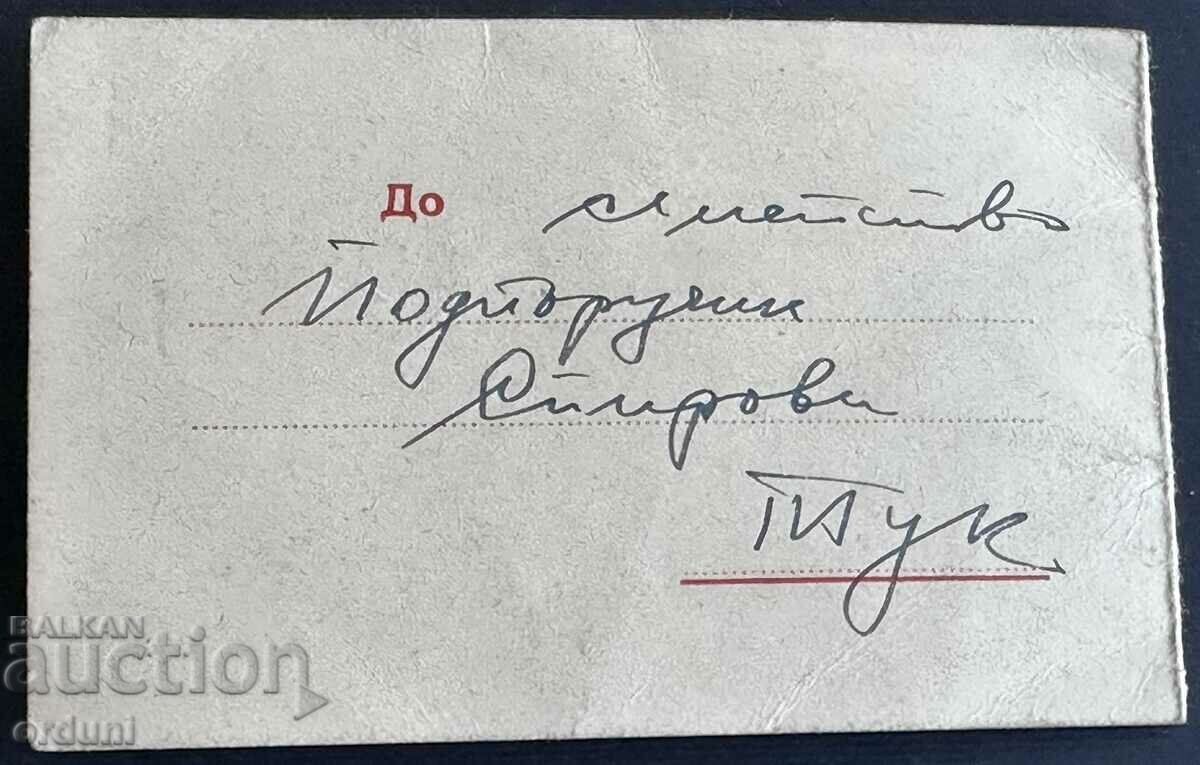 До семейство
Подпоручик
Спирови
Тук
BALKAN
auction
orduni